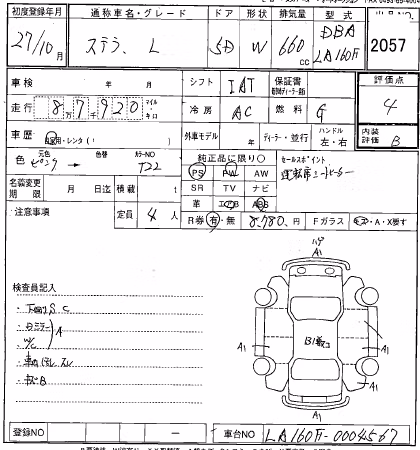 初度登録年月 通称車名・グレード ドア 形状 排気量 型式
27/10月 ステラ L 5D W 660cc DBA LA160F 2057
車検 シフト IAT 保証書 評価点
走行 8万7千920 マイル キロ 冷房 AC 燃料 G 4
車歴 自家用・レンタ( ) 外車モデル 年 ディーラー・並行 ハンドル 左・右 内装評価 B
色 元色 ピンク 色替 カラーNO T22 純正品に限り○ セールスポイント
名義変更期限 月 日迄 積載 t PS PW AW 運転席シートヒーター
SR TV ナビ
注意事項 定員 4人 革 エアB ABS
R券 有・無 8,780円 Fガラス A・X要す
ハゲ
A1
検査員記入
下回りS C
Dミラー
W/C A
車内汚レ スレ
キズB
A1 A1 A1
A1
登録NO ー 車台NO LA160F-0004567